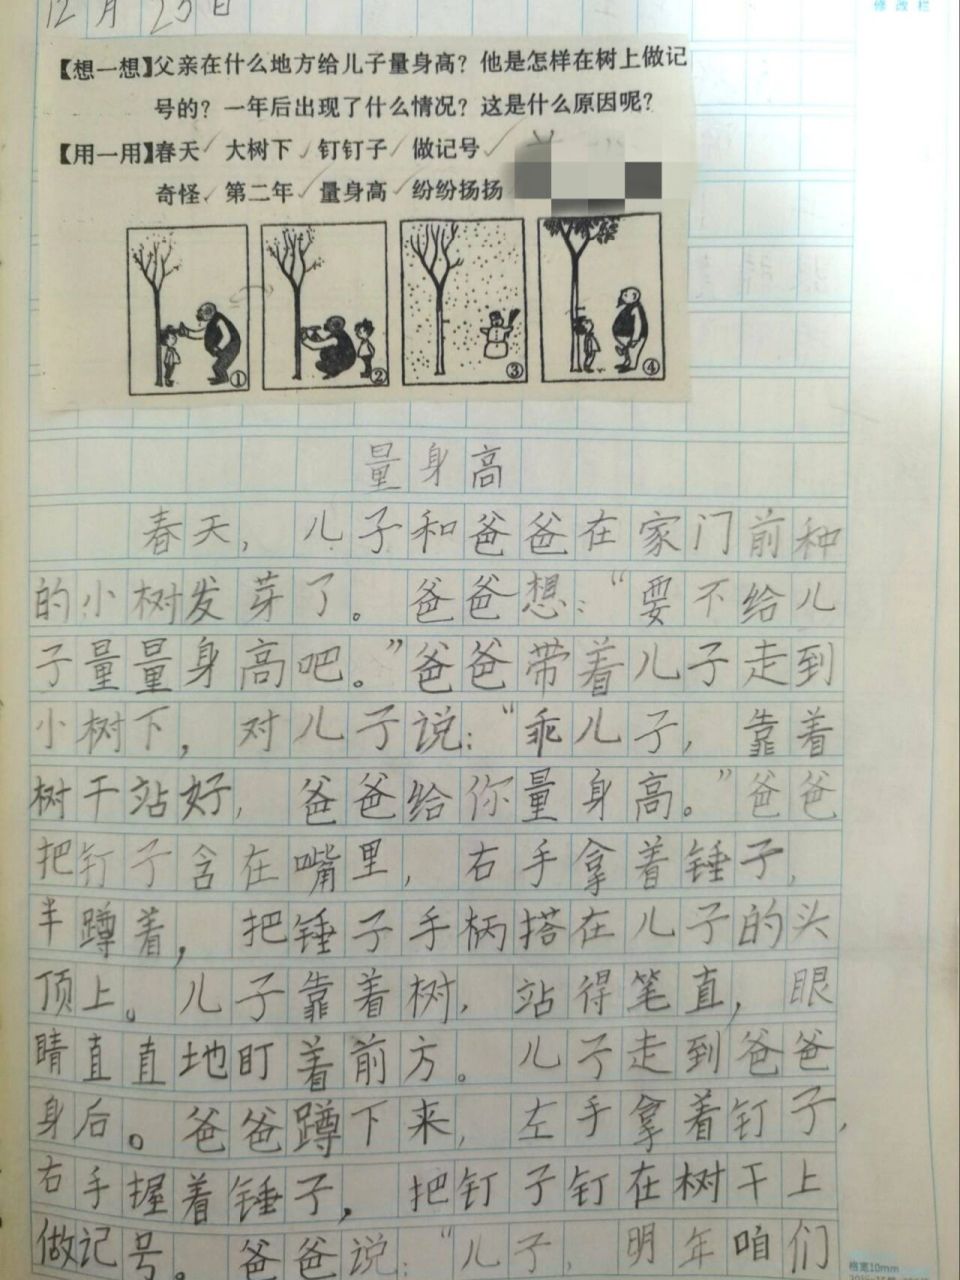 12月25日
修改栏
【想一想】父亲在什么地方给儿子量身高？他是怎样在树上做记
号的？一年后出现了什么情况？这是什么原因呢？
【用一用】春天✓ 大树下✓ 钉钉子✓ 做记号✓
奇怪✓ 第二年✓ 量身高✓ 纷纷扬扬
① ② ③ ④
量身高
春天，儿子和爸爸在家门前种
的小树发芽了。爸爸想：“要不给儿
子量量身高吧。”爸爸带着儿子走到
小树下，对儿子说：“乖儿子，靠着
树干站好，爸爸给你量身高。”爸爸
把钉子含在嘴里，右手拿着锤子，
半蹲着，把锤子手柄搭在儿子的头
顶上。儿子靠着树，站得笔直，眼
睛直直地盯着前方。儿子走到爸爸
身后。爸爸蹲下来，左手拿着钉子，
右手握着锤子，把钉子钉在树干上
做记号。爸爸说：“儿子，明年咱们
格宽10mm